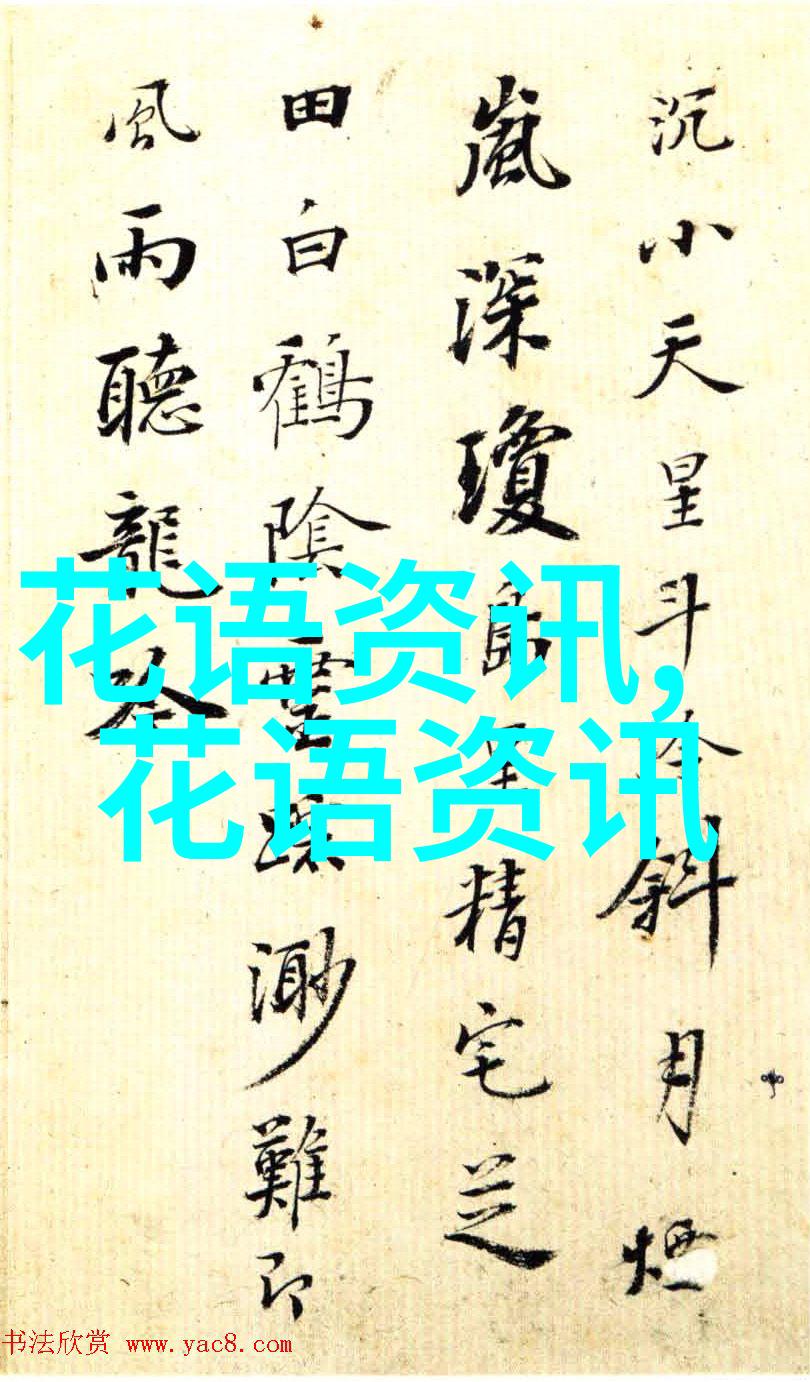 沉小天星斗斜月煙
嵐深瓊島至精宅芝
田白鶴陰靈蹤渺難即
風雨聽龍吟
花语资讯,
花语资讯
书法欣赏 www.yac8.com